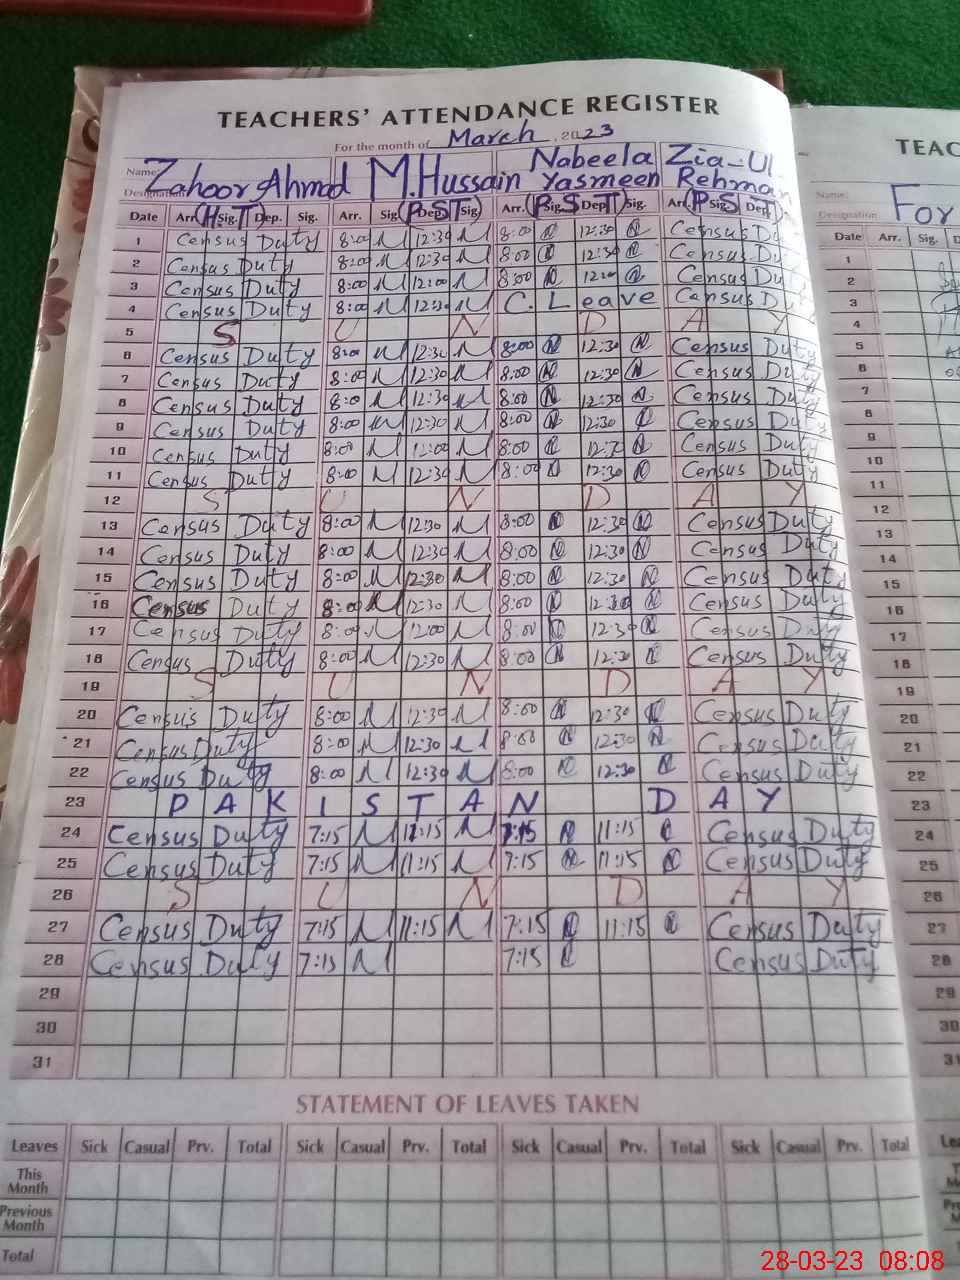 TEACHERS' ATTENDANCE REGISTER
For the month of March, 2023
TEAC
Name: Zahoor Ahmad M. Hussain Nabeela Yasmeen Zia-Ul Rehman
Designation (H S T) (P S T) (P S T) (P S T)
Name:
Designation For
Date Arr. Sig. Dep. Sig. Arr. Sig. Dep. Sig. Arr. Sig. Dep. Sig. Arr. Sig. Dep. Date Arr. Sig. D
1 Census Duty 8:00 M 12:30 M 8:00 N 12:30 N Census Du 1
2 Census Duty 8:00 M 12:30 M 8:00 N 12:30 N Census D 2
3 Census Duty 8:00 M 12:00 M 8:00 N 12:00 N Census D 3
4 Census Duty 8:00 M 12:30 M C. Leave Census Du 4
5 S U N D A Y 5
6 Census Duty 8:00 M 12:30 M 8:00 N 12:30 N Census Duty 6
7 Census Duty 8:00 M 12:30 M 8:00 N 12:30 N Census Duty 7
8 Census Duty 8:00 M 12:30 M 8:00 N 12:30 N Census Duty 8
9 Census Duty 8:00 M 12:30 M 8:00 N 12:30 N Census Duty 9
10 Census Duty 8:00 M 12:00 M 8:00 N 12:30 N Census Duty 10
11 Census Duty 8:00 M 12:30 M 8:00 N 12:30 N Census Duty 11
12 S U N D A Y 12
13 Census Duty 8:00 M 12:30 M 8:00 N 12:30 N Census Duty 13
14 Census Duty 8:00 M 12:30 M 8:00 N 12:30 N Census Duty 14
15 Census Duty 8:00 M 12:30 M 8:00 N 12:30 N Census Duty 15
16 Census Duty 8:00 M 12:30 M 8:00 N 12:30 N Census Duty 16
17 Census Duty 8:00 M 12:00 M 8:00 N 12:30 N Census Duty 17
18 Census Duty 8:00 M 12:30 M 8:00 N 12:30 N Census Duty 18
19 S U N D A Y 19
20 Census Duty 8:00 M 12:30 M 8:00 N 12:30 N Census Duty 20
21 Census Duty 8:00 M 12:30 M 8:00 N 12:30 N Census Duty 21
22 Census Duty 8:00 M 12:30 M 8:00 N 12:30 N Census Duty 22
23 P A K I S T A N D A Y 23
24 Census Duty 7:15 M 11:15 M 7:15 N 11:15 N Census Duty 24
25 Census Duty 7:15 M 11:15 M 7:15 N 11:15 N Census Duty 25
26 S U N D A Y 26
27 Census Duty 7:15 M 11:15 M 7:15 N 11:15 N Census Duty 27
28 Census Duty 7:15 M 7:15 N Census Duty 28
29 29
30 30
31 31
STATEMENT OF LEAVES TAKEN
Leaves Sick Casual Prv. Total Sick Casual Prv. Total Sick Casual Prv. Total Sick Casual Prv. Total Lea
This Month
Previous Month
Total
28-03-23 08:08